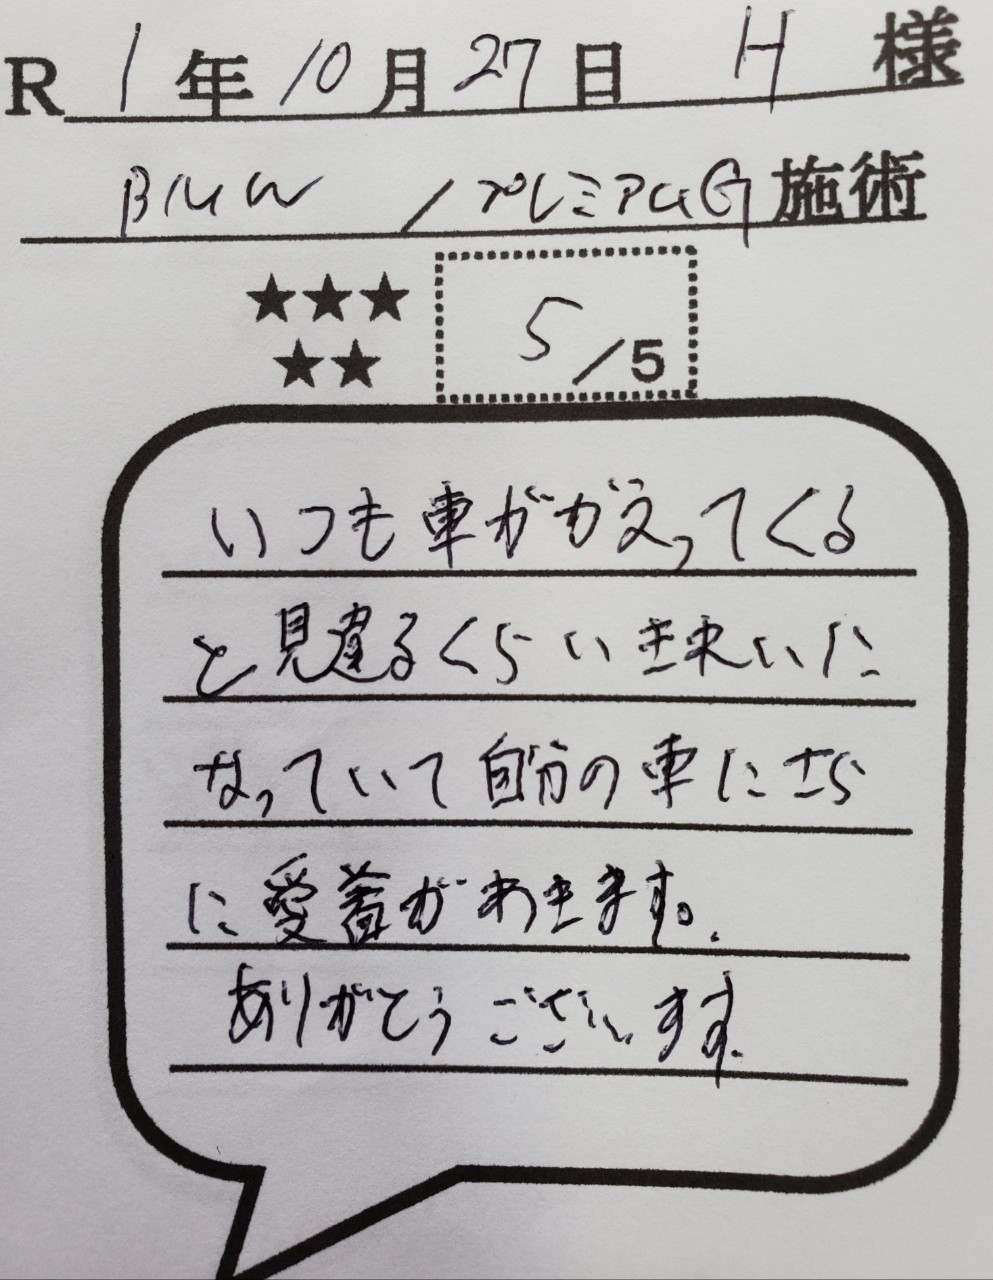 R 1 年 10 月 27 日 H 様
BMW / プレミアムG 施術
★★★
★★
5 /5
いつも車ががえってくる
と見違るくらいきれいに
なっていて自分の車にさら
に愛着がわきます。
ありがとうございます。